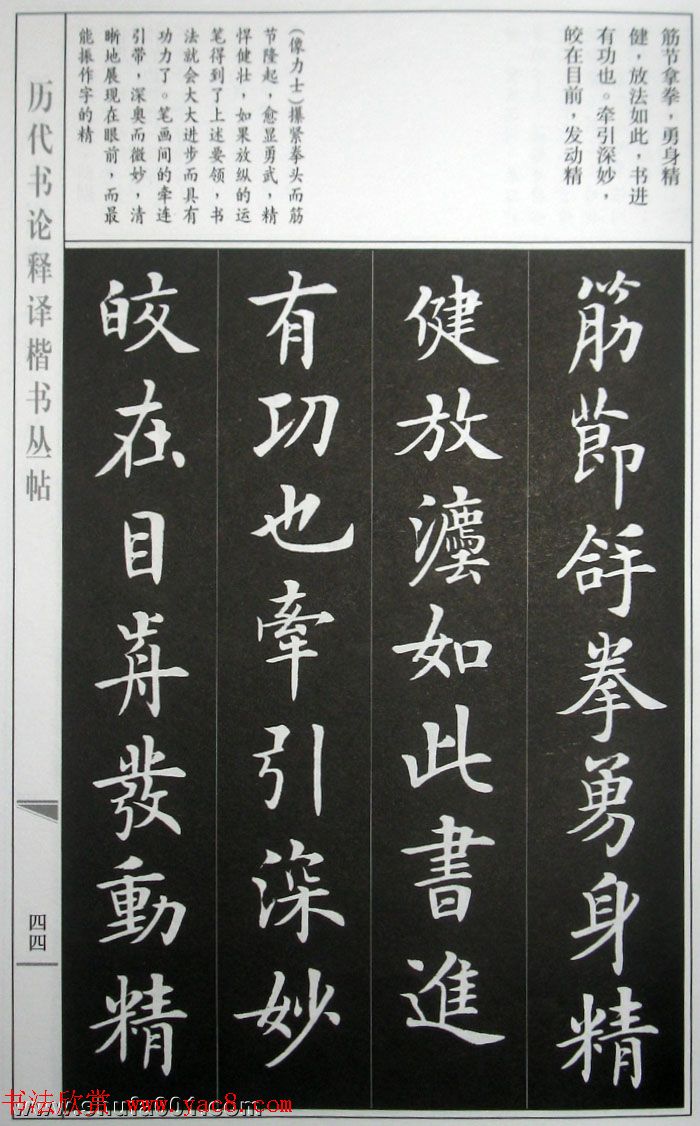 筋节拿拳，勇身精
健，放法如此，书进
有功也。牵引深妙，
皎在目前，发动精
（像力士）攥紧拳头而筋
节隆起，愈显勇武，精
悍健壮，如果放纵的运
笔得到了上述要领，书
法就会大大进步而具有
功力了。笔画间的牵连
引带，深奥而微妙，清
晰地展现在眼前，而最
能振作字的精
筋節拿拳勇身精
健放灋如此書進
有功也牽引深妙
皎在目歬發動精
历代书论释译楷书丛帖
四四
书法欣赏 www.yac8.com
www.shufa001.com